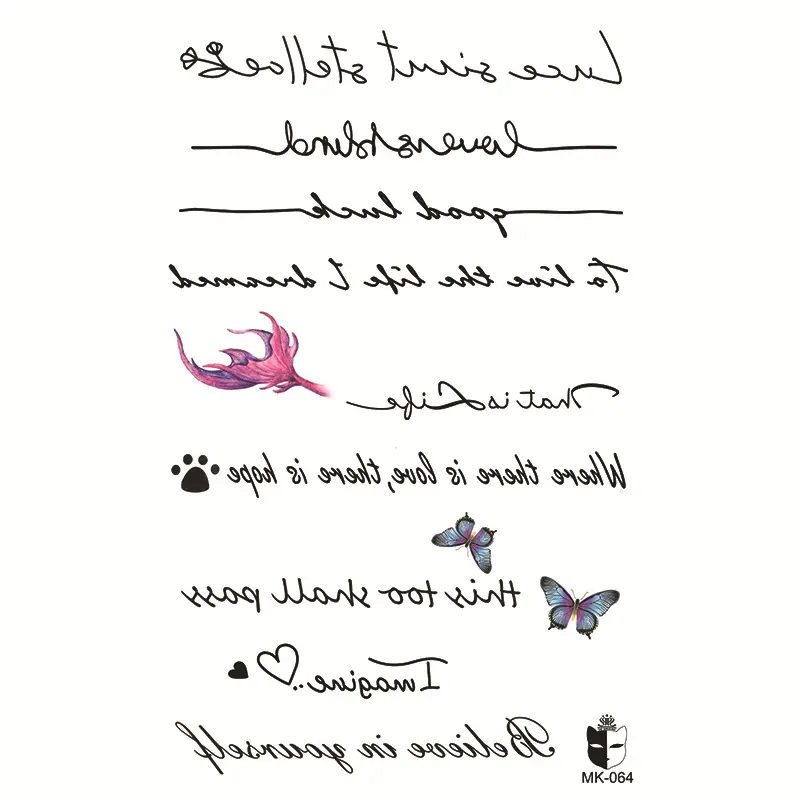 Luce sunt stellae
loveisblind
good luck
To live the life I dreamed
That is Life
Where there is love, there is hope
this too shall pass
Imagine...
Believe in yourself
MK-064